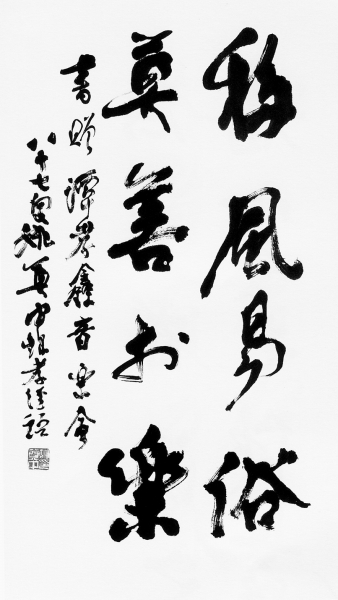 移風易俗
莫善於樂
書贈譚鑫音樂會
八十七叟姚奠中録孝經語